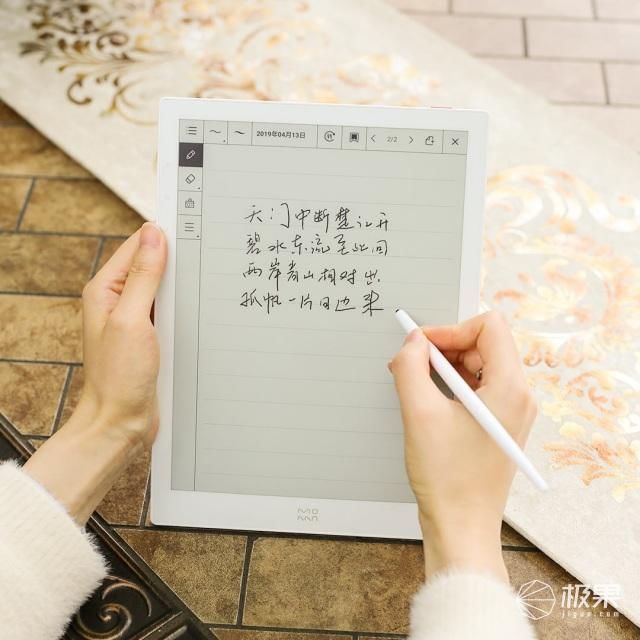 2019年04月13日 2/2
天门中断楚江开
碧水东流至此回
两岸青山相对出
孤帆一片日边来
极果
jiguo.com